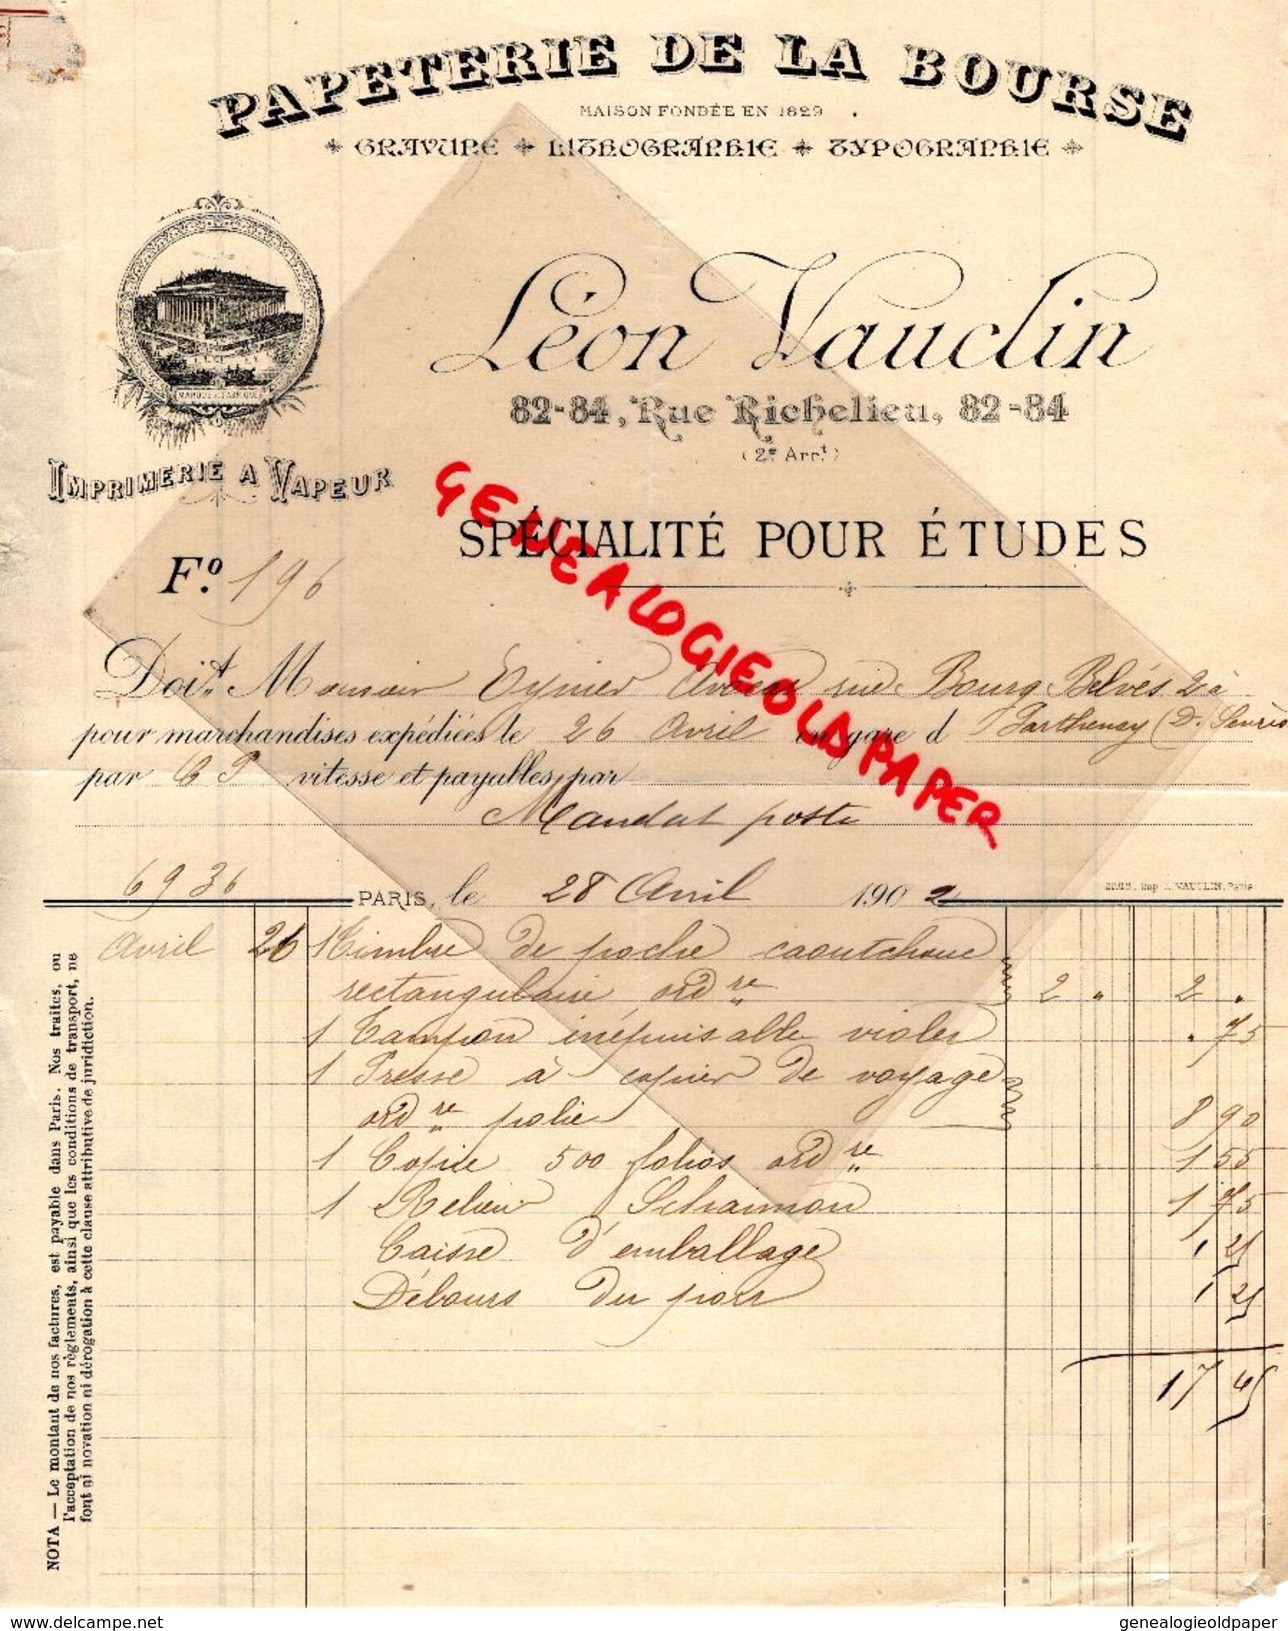 PAPETERIE DE LA BOURSE
MAISON FONDÉE EN 1829
GRAVURE LITHOGRAPHIE TYPOGRAPHIE
Léon Vauclin
82-84, Rue Richelieu, 82-84
(2e Arrt)
MARQUE DE FABRIQUE
IMPRIMERIE A VAPEUR
SPÉCIALITÉ POUR ÉTUDES
GENEALOGIEOLDPAPER
Fo. 196
Doit Monsieur Eymer rue Bourg Belvés 2 à
pour marchandises expédiées le 26 Avril en gare d Parthenay (D. Sevrès
par C P vitesse et payables par
Mandat poste
6936
PARIS, le 28 Avril 1902
Imp. L. VAUCLIN, Paris
Avril 26 1 Timbre de poche caoutchouc
rectangulaire ordre 2 " 2 "
1 Tampon inépuisable violet . 75
1 Presse à copier de voyage
ordre polie 8 90
1 Copie 500 folios ordre 1 55
1 Relieur 1 75
Caisse d'emballage 1 25
Débours du port 1 25
17 45
NOTA — Le montant de nos factures, est payable dans Paris. Nos traites, ou
l'acceptation de nos règlements, ainsi que les conditions de transport, ne
font ni novation ni dérogation à cette clause attributive de juridiction.
www.delcampe.net
genealogieoldpaper